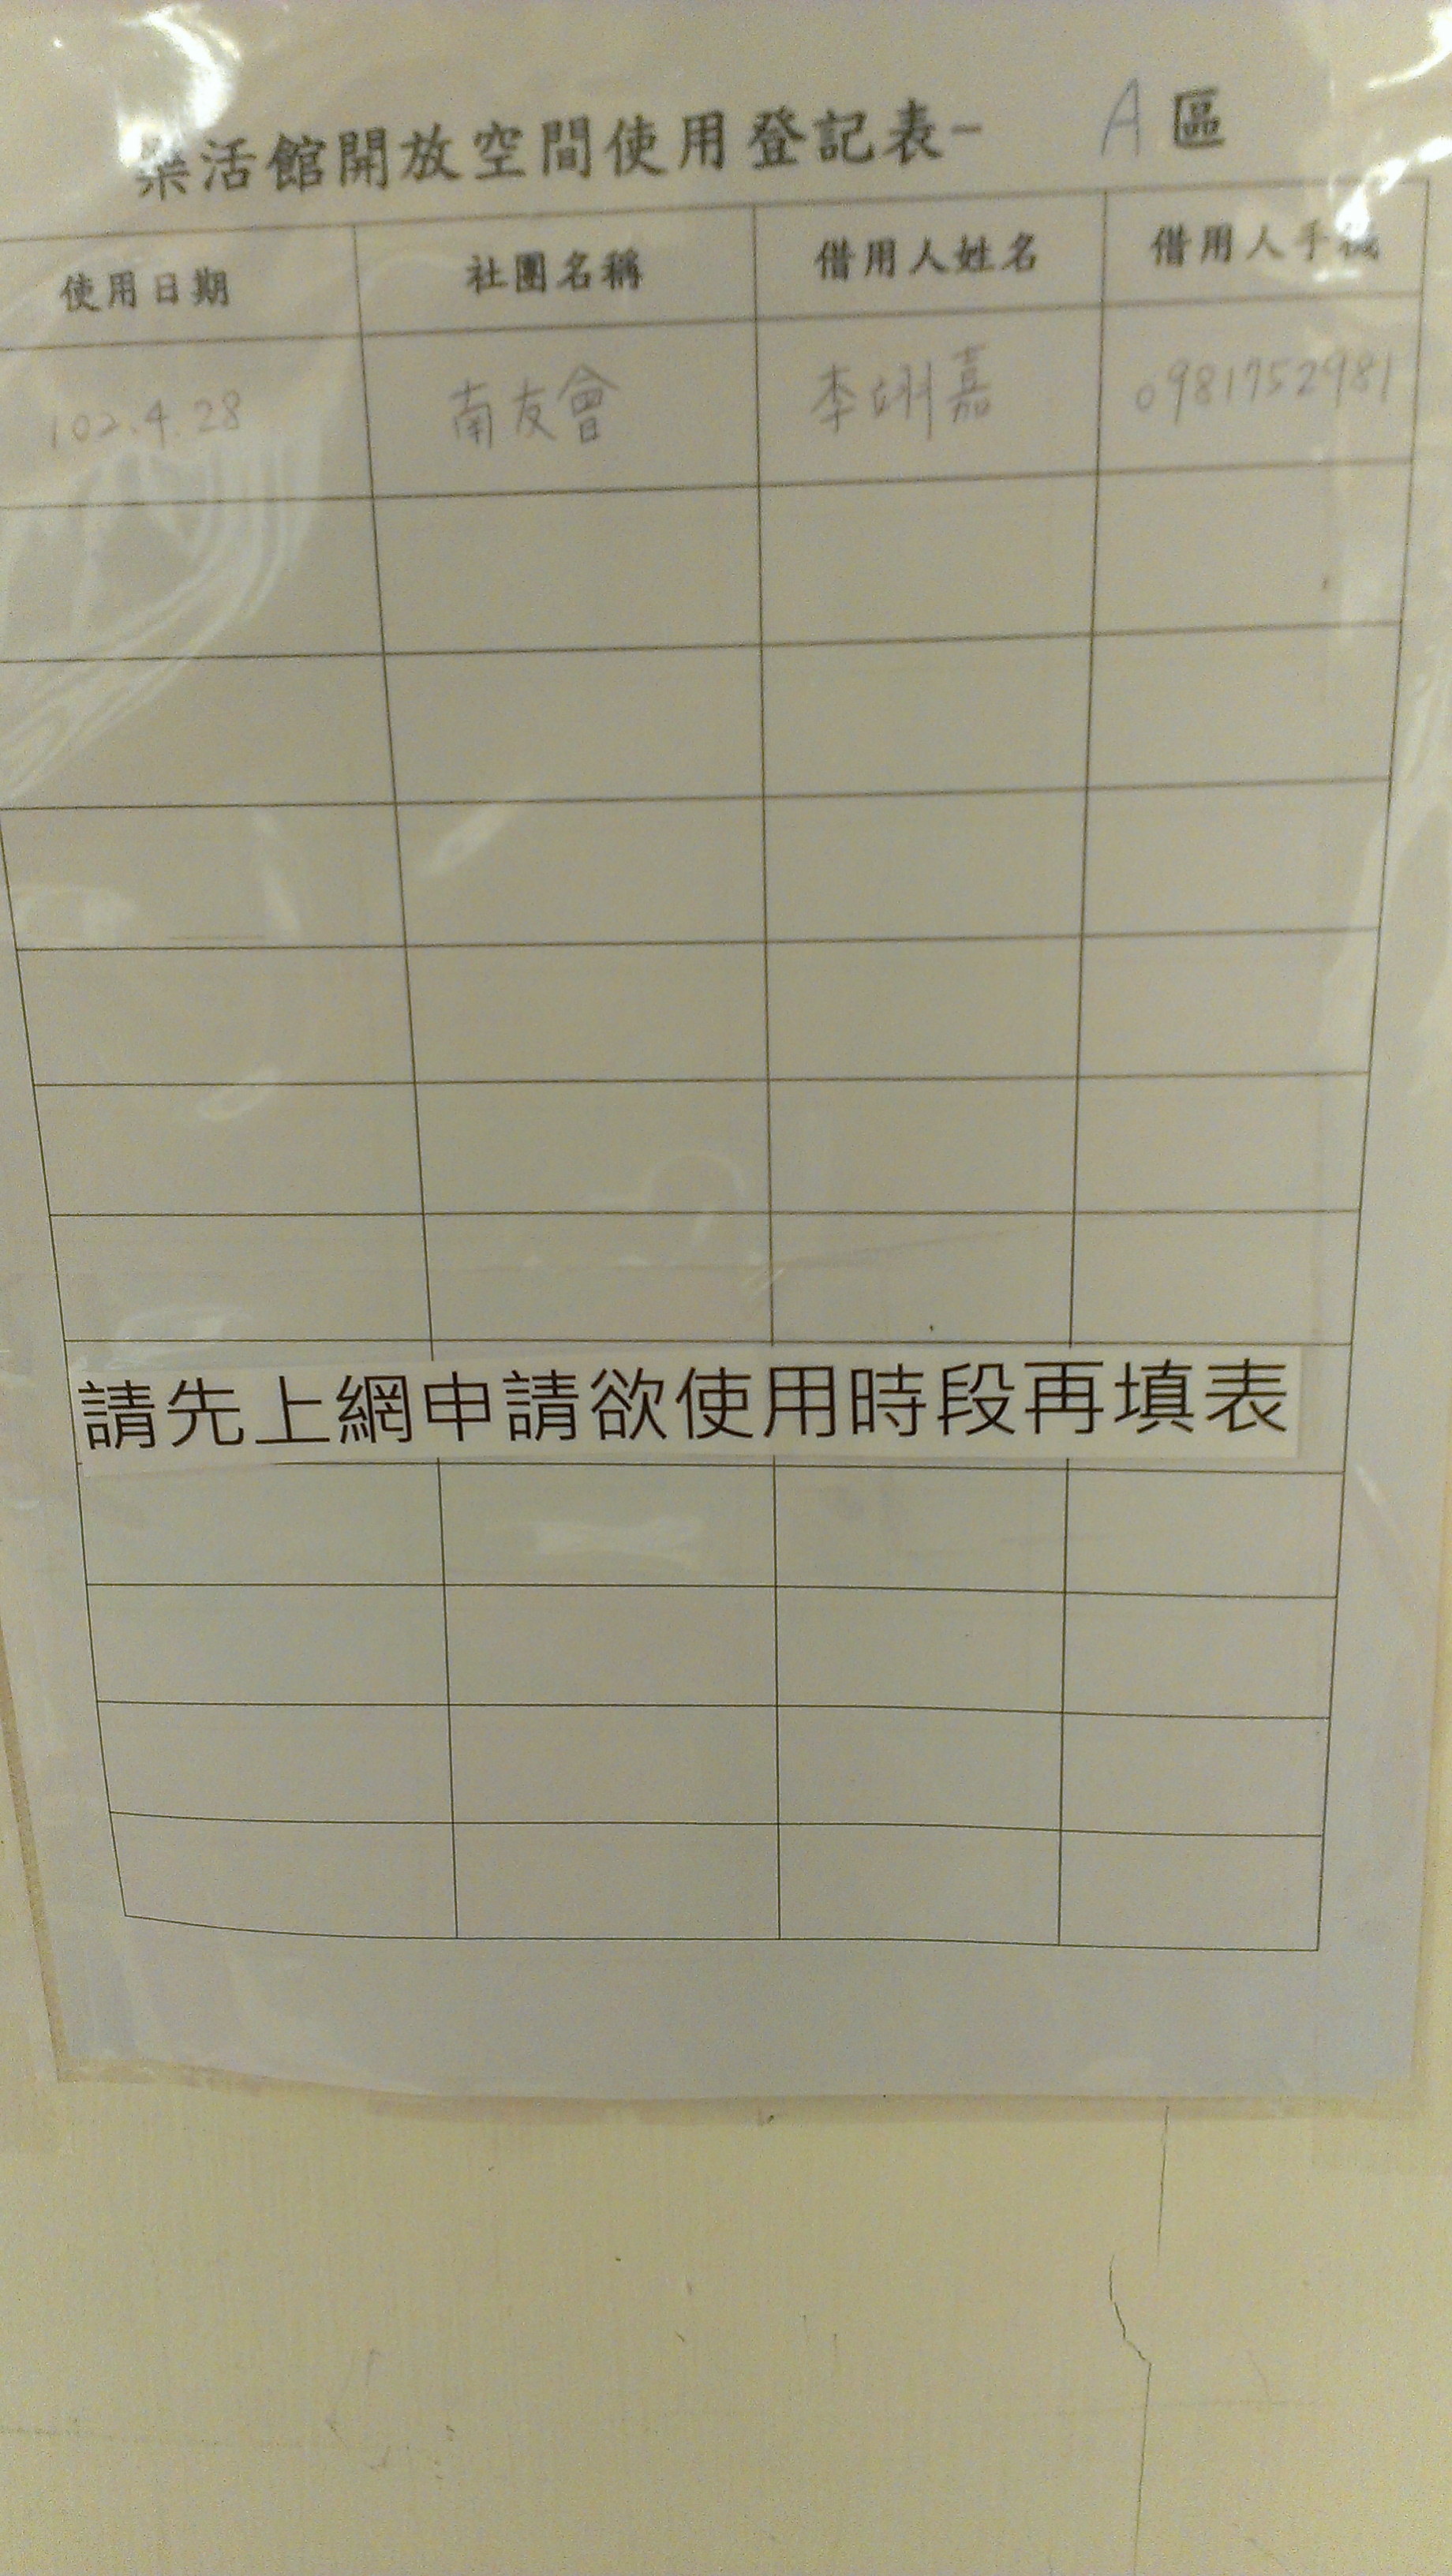 樂活館開放空間使用登記表- A 區
使用日期 社團名稱 借用人姓名 借用人手機
102.4.28 南友會 李翊嘉 0981752981
請先上網申請欲使用時段再填表